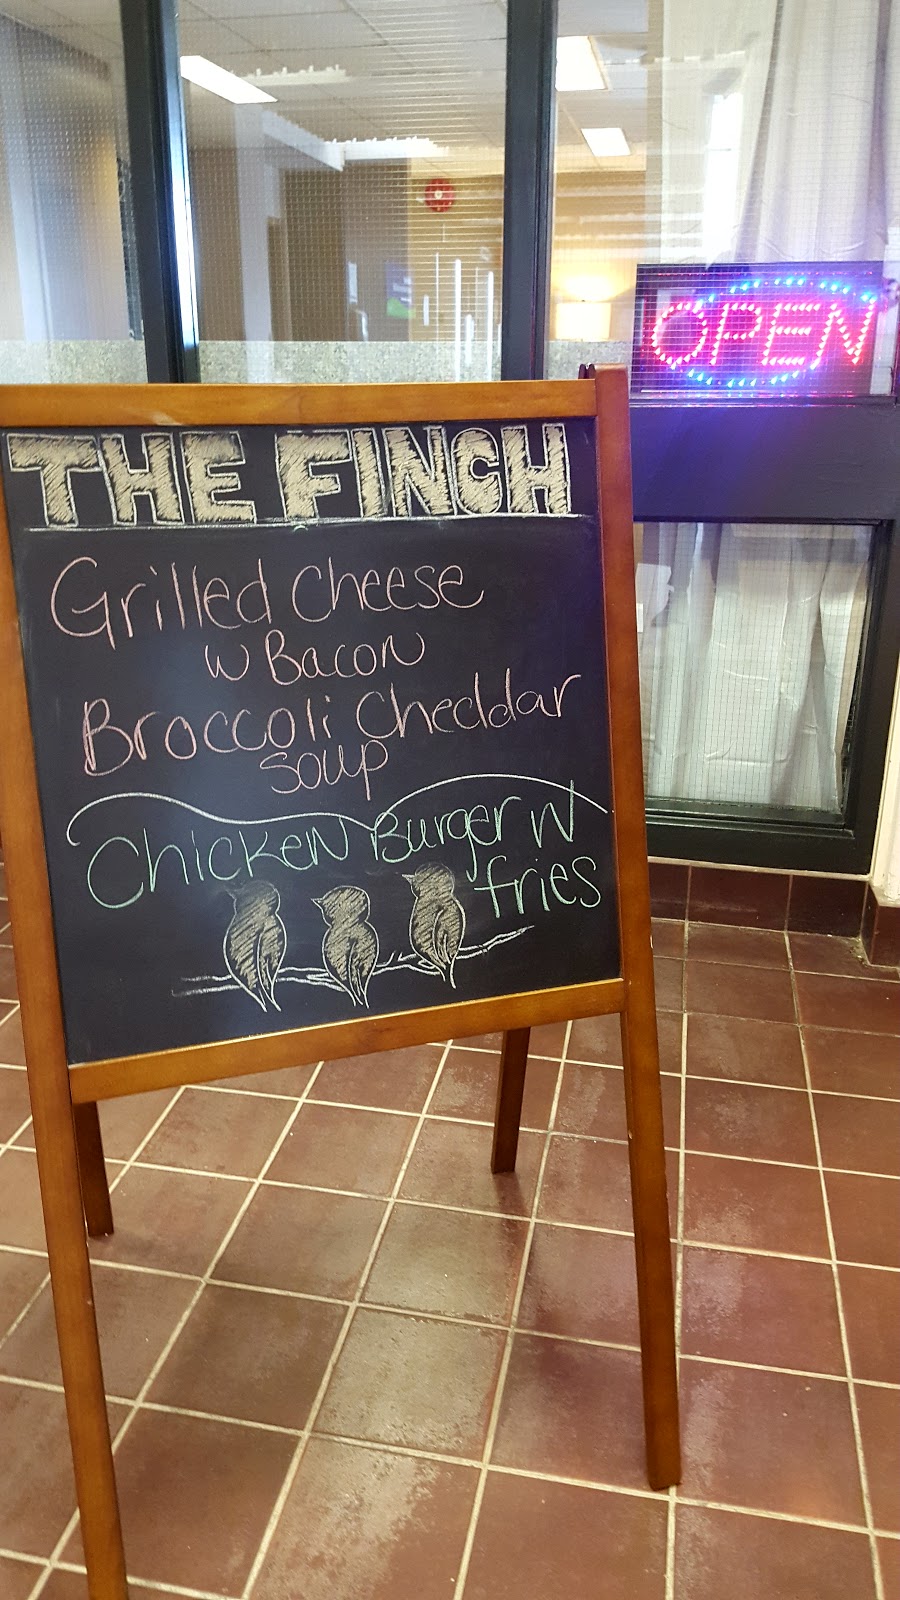 THE FINCH
Grilled Cheese
w Bacon
Broccoli Cheddar
soup
Chicken Burger W
fries
OPEN